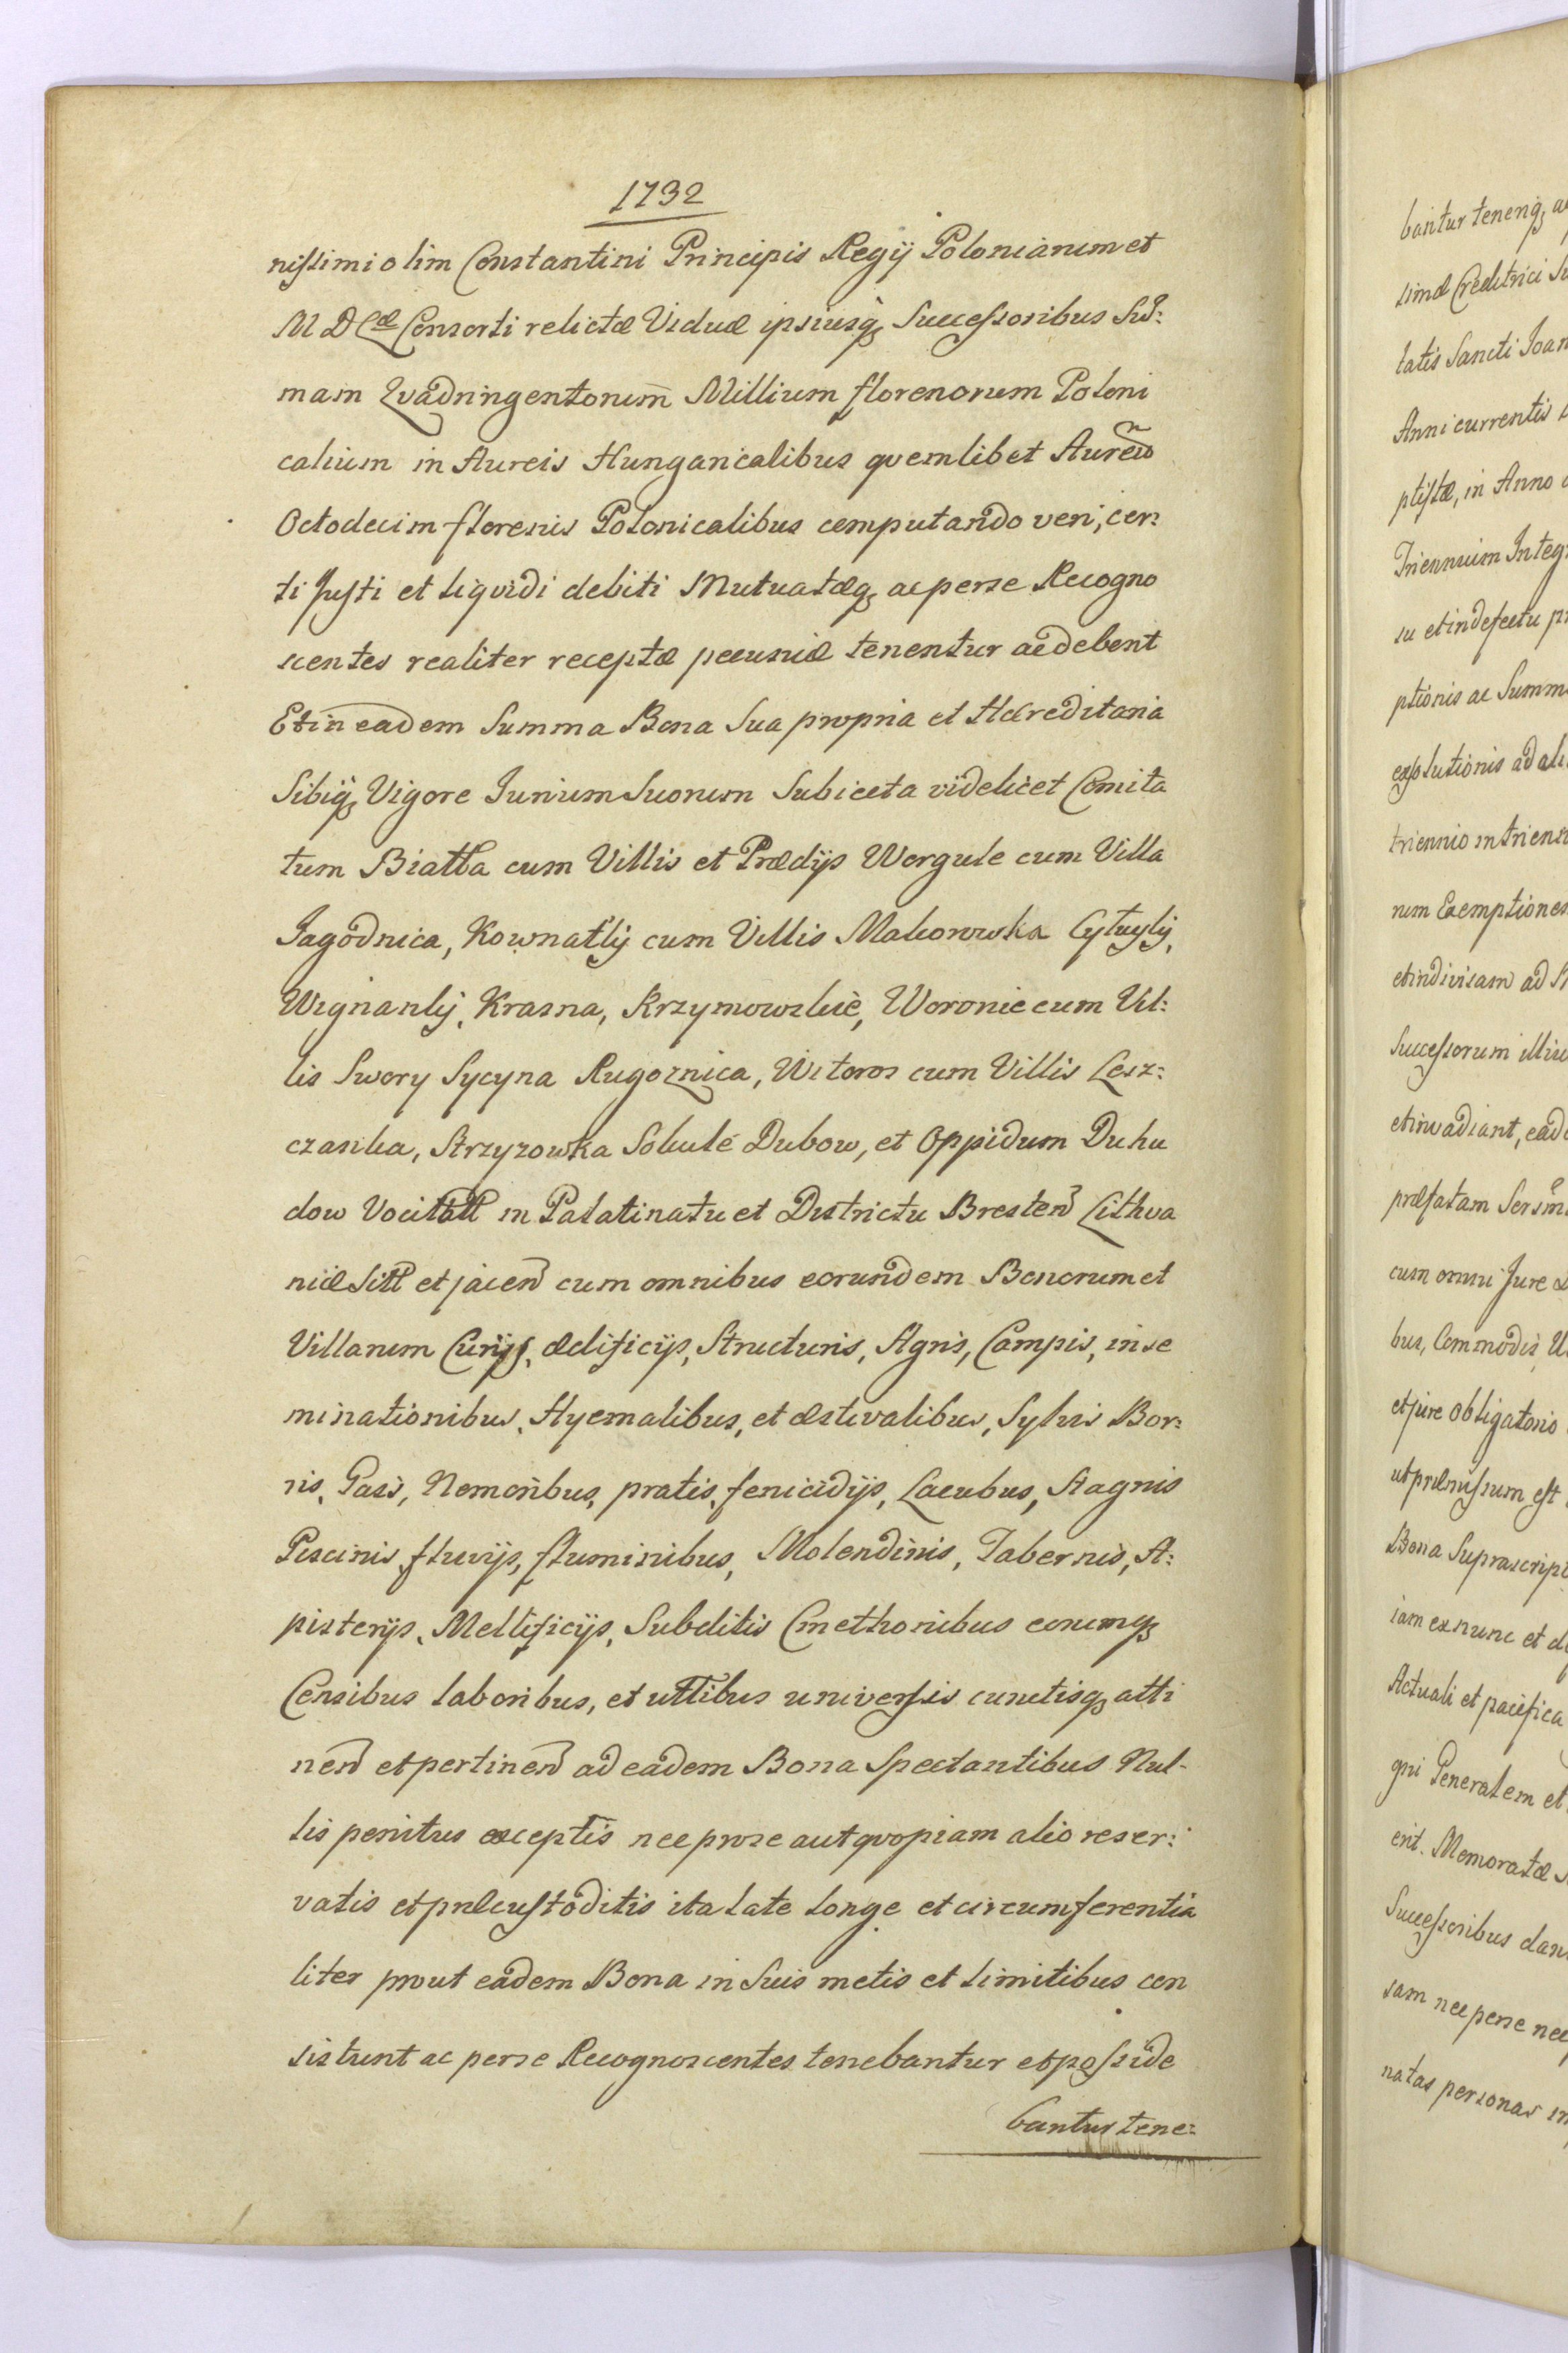 1732
nissimi olim Constantini Principis Regij Poloniarum et
M D Cæ Consorti relictæ Viduæ ipsiusq3 Successoribus Su͞:
mam Qvadringentorum̄ Millium florenorum Poloni
calium in Aureis Hungaricalibus qvemlibet Aureū
Octodecim florenis Polonicalibus computando veri, cer:
ti Justi et liqvidi debiti Mutuatæq3 ac perse Recogno
scentes realiter receptæ pecuniæ tenentur ac debent
Et in eadem Summa Bona Sua propria et Hæreditaria
Sibiq3 Vigore Jurium Suorum Subiecta videlicet Comita
tum Biatta cum Villis et Prædijs Worgule cum Villa
Jagodnica, Kownatkj cum Villis Makorowska Cytuykj,
Wignankj, Krasna, Krzymowskie, Woronie cum Vil:
lis Swory Sycyna Rugoznica, Witoroz cum Villis Lesz:
czanka, Strzyzowka Sokule Dubow, et Oppidum Duku
dow Vocitatt in Palatinatu et Districtu Bresten Lithva
niæ Sitt et jacen cum omnibus eorundem Bonorum et
Villarum Curijs, ædificijs, Structuris, Agris, Campis, inse
minationibus, Hyemalibus, et æstivalibus, Sylvis Bor:
ris, Gais, Nemoribus, pratis, fenicidijs, Lacubus, Stagnis
Piscinis, fluvijs, fluminibus, Molendinis, Tabernis, A:
pisterijs, Mellificijs, Subditis Cmethonibus eorumq3
Censibus laboribus, et uttibus universis cunctisq3 atti
nen et pertinen ad eadem Bona Spectantibus Nul-
lis penitus exceptis nec pro se aut qvopiam alio reser:
vatis et præcustoditis ita late longe et circumferentia
liter prout eadem Bona in Suis metis et limitibus con
sistunt ac perse Recognoscentes tenebantur et posside
bantur tene:
bantur teneriq3
simæ Creditrici
tatis Sancti Joan
Anni currentis
ptistæ, in Anno
Triennium Integ
su et in defectu
ptionis ac Summ
exsolutionis ad
triennio in trien
rum Exemptiones
et indivisam ad
Successorum illiu
et inwadiant, ead
præfatam Sersm
cum omni Jure
bus, Commodis
et jure obligatorio
ut præmissum est
Bona Suprascrip
iam ex nunc et
Actuali et pacifica
gni Generalem et
erit. Memoratæ
Successoribus dan
sam nec perse nec
natas personas